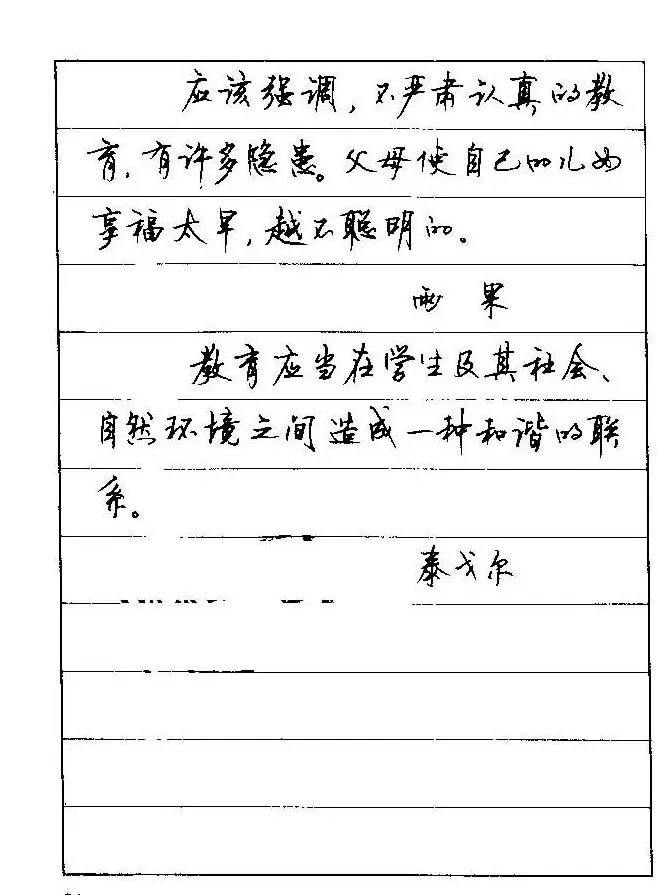 应该强调，不严肃认真的教
育，有许多隐患。父母使自己的儿女
享福太早，越不聪明的。
雨果
教育应当在学生及其社会、
自然环境之间造成一种和谐的联
系。
泰戈尔